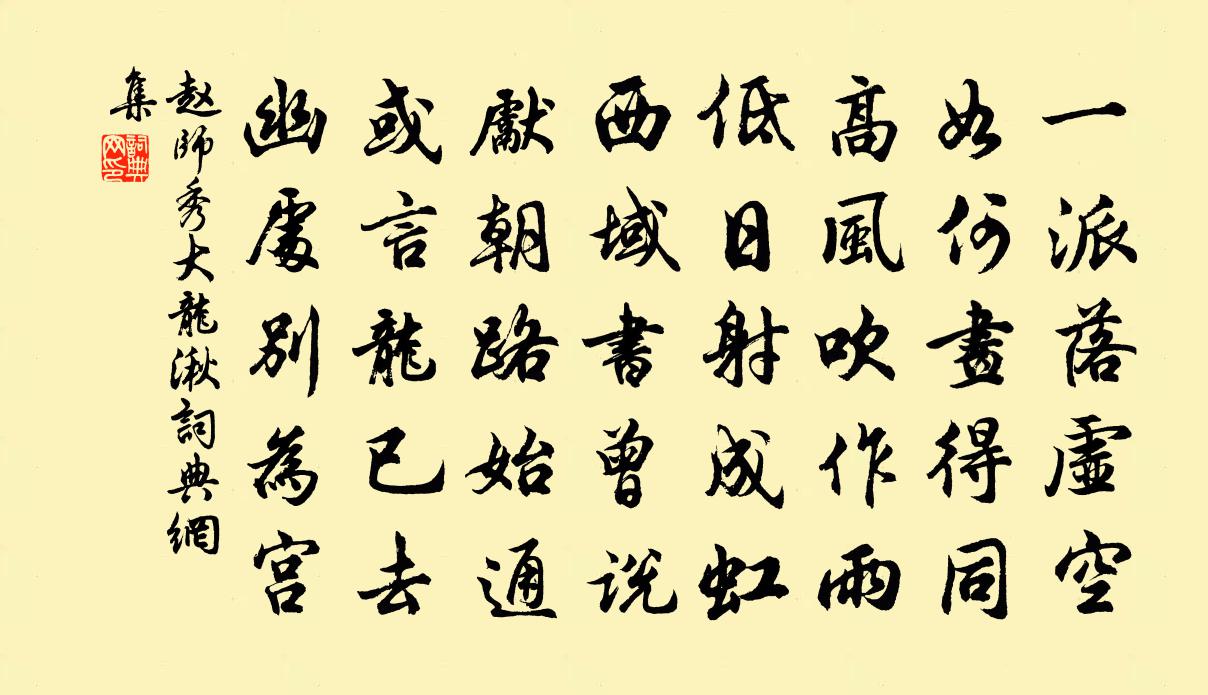 一派落虛空
如何畫得同
高風吹作雨
低日射成虹
西域書曾說
獻朝路始通
或言龍已去
幽處別為宮
赵師秀大龍湫詞典網
集
詞典網印